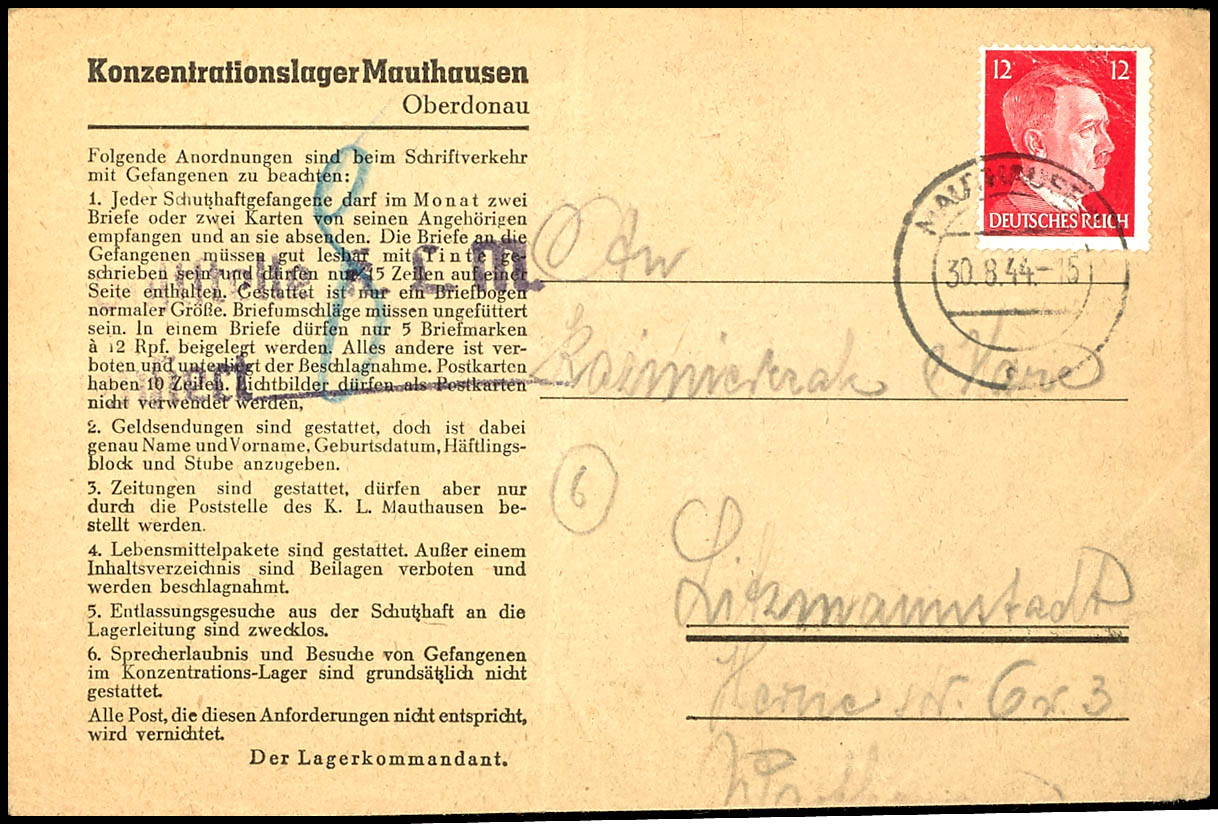 Konzentrationslager Mauthausen
Oberdonau
Folgende Anordnungen sind beim Schriftverkehr
mit Gefangenen zu beachten:
1. Jeder Schutzhaftgefangene darf im Monat zwei
Briefe oder zwei Karten von seinen Angehörigen
empfangen und an sie absenden. Die Briefe an die
Gefangenen müssen gut lesbar mit Tinte ge-
schrieben sein und dürfen nur 15 Zeilen auf einer
Seite enthalten. Gestattet ist nur ein Briefbogen
normaler Größe. Briefumschläge müssen ungefüttert
sein. In einem Briefe dürfen nur 5 Briefmarken
à 12 Rpf. beigelegt werden. Alles andere ist ver-
boten und unterliegt der Beschlagnahme. Postkarten
haben 10 Zeilen. Lichtbilder dürfen als Postkarten
nicht verwendet werden,
2. Geldsendungen sind gestattet, doch ist dabei
genau Name und Vorname, Geburtsdatum, Häftlings-
block und Stube anzugeben.
3. Zeitungen sind gestattet, dürfen aber nur
durch die Poststelle des K. L. Mauthausen be-
stellt werden.
4. Lebensmittelpakete sind gestattet. Außer einem
Inhaltsverzeichnis sind Beilagen verboten und
werden beschlagnahmt.
5. Entlassungsgesuche aus der Schutzhaft an die
Lagerleitung sind zwecklos.
6. Sprecherlaubnis und Besuche von Gefangenen
im Konzentrations-Lager sind grundsätzlich nicht
gestattet.
Alle Post, die diesen Anforderungen nicht entspricht,
wird vernichtet.
Der Lagerkommandant.
K. L. M.
12 12
DEUTSCHES REICH
MAUTHAUSEN
30.8.44.-15
An
6
Litzmannstadt
3